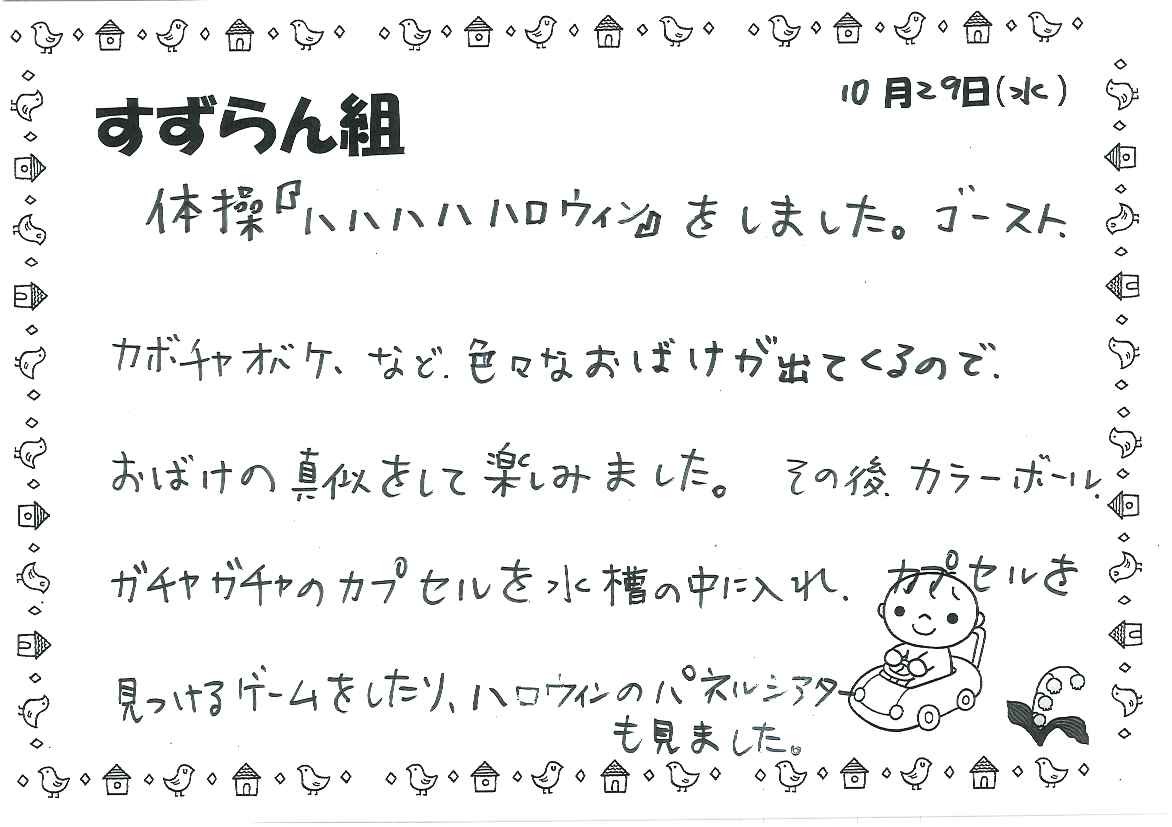 10月29日(水)
すずらん組
体操『ハハハハハロウィン』をしました。ゴースト、
カボチャオバケ、など、色々なおばけが出てくるので、
おばけの真似をして楽しみました。 その後、カラーボール、
ガチャガチャのカプセルを水槽の中に入れ、カプセルを
見つけるゲームをしたり、ハロウィンのパネルシアター
も見ました。